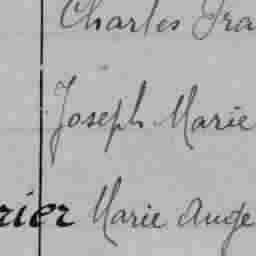 Charles Fra
Joseph Marie
rier Marie Ange